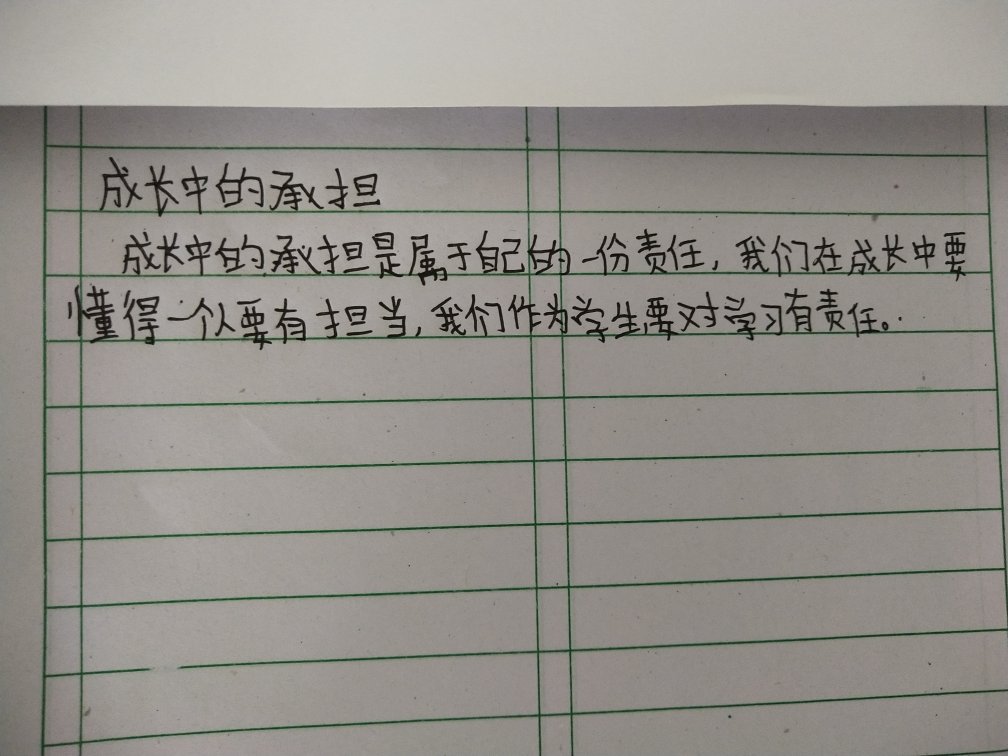 成长中的承担
成长中的承担是属于自己的一份责任,我们在成长中要
懂得一个人要有担当,我们作为学生要对学习有责任。